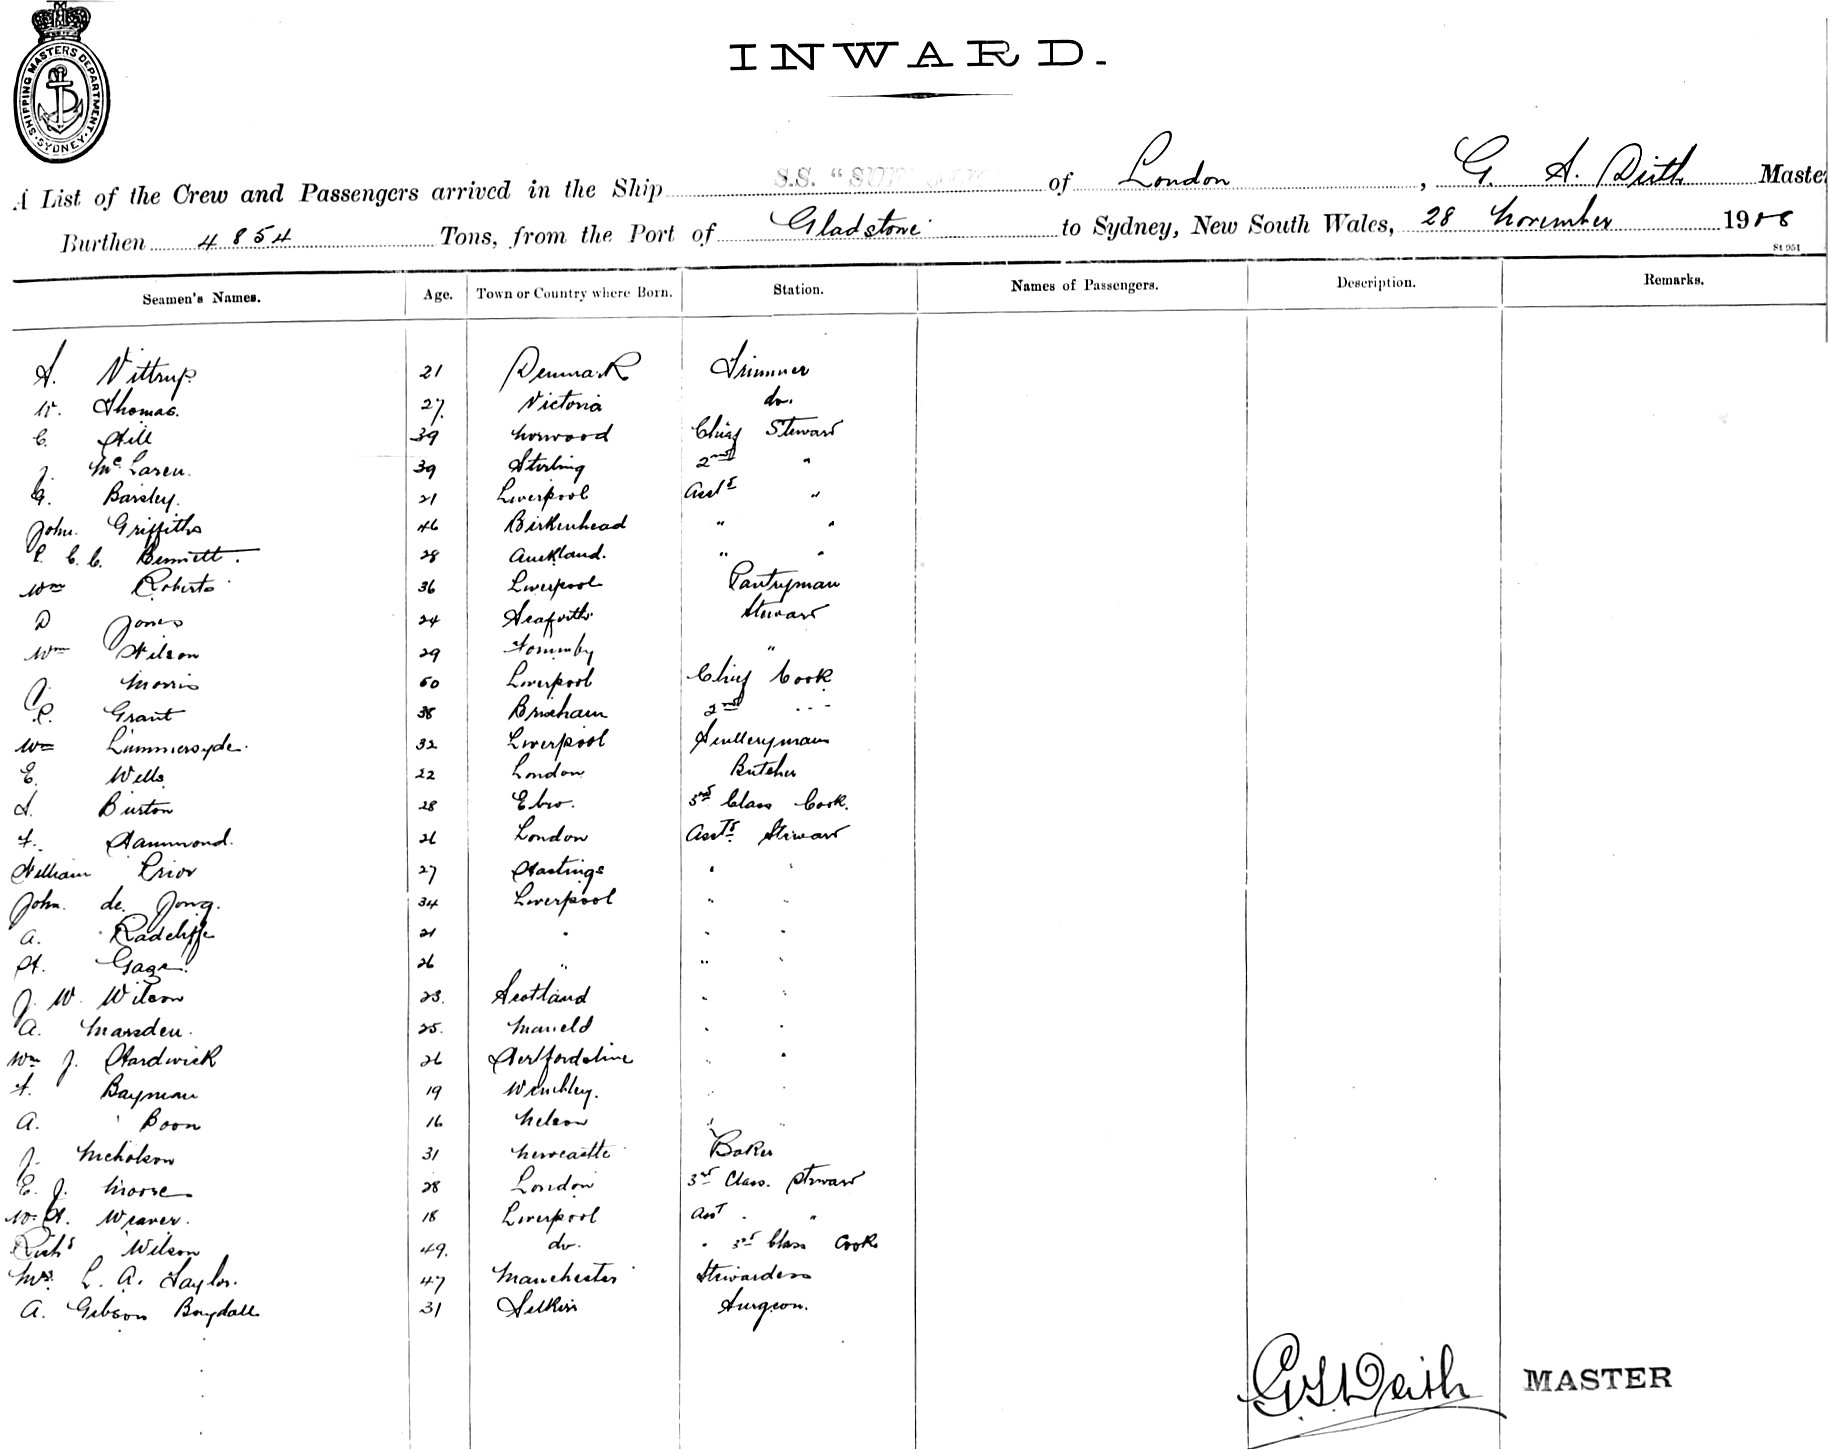 INWARD.
SHIPPING MASTERS DEPARTMENT
SYDNEY
A List of the Crew and Passengers arrived in the Ship S.S. " of London, G. S. Master
Burthen 4854 Tons, from the Port of Gladstone to Sydney, New South Wales, 28 November 1908
St 951
Seamen's Names. Age. Town or Country where Born. Station. Names of Passengers. Description. Remarks.
S. Vittrup 21 Denmark Trimmer
W. Thomas. 27. Victoria do.
C. Hill 39 Norwood Chief Steward
J. McLaren. 39 Stirling 2nd "
G. Barsley. 21 Liverpool Asst "
John. Griffiths 46 Birkenhead " "
C. C. Bennett. 28 Auckland. " "
Wm Roberts 36 Liverpool Pantryman
D Jones 24 Seaforth Steward
Wm Wilson 29 Formby "
J. Morris 50 Liverpool Chief Cook
P. Grant 38 Brixham 2nd - - -
Wm 32 Liverpool Sculleryman
E. Wells 22 London Butcher
S. Burton 28 3rd Class Cook.
F. Hammond. 26 London Asst Steward
William Prior 27 Hastings " "
John. de Jong. 34 Liverpool " "
A. Radcliffe 21 " " "
H. Gage. 26 " " "
J. W. Wilson 23. Scotland " "
A. Marsden. 25. " "
Wm J. Hardwick 26 Hertfordshire " "
F. Bayman 19 Wembley. " "
A. Boon 16 Nelson " "
J. Nicholson 31 Newcastle Baker
E. J. Moore 28 London 3rd Class. Steward
W. H. Weaver. 18 Liverpool Asst " "
Richd Wilson 49. do. " 3rd Class Cook
Mrs. L. A. Taylor. 47 Manchester Stewardess
A. Gibson 31 Selkirk Surgeon.
MASTER